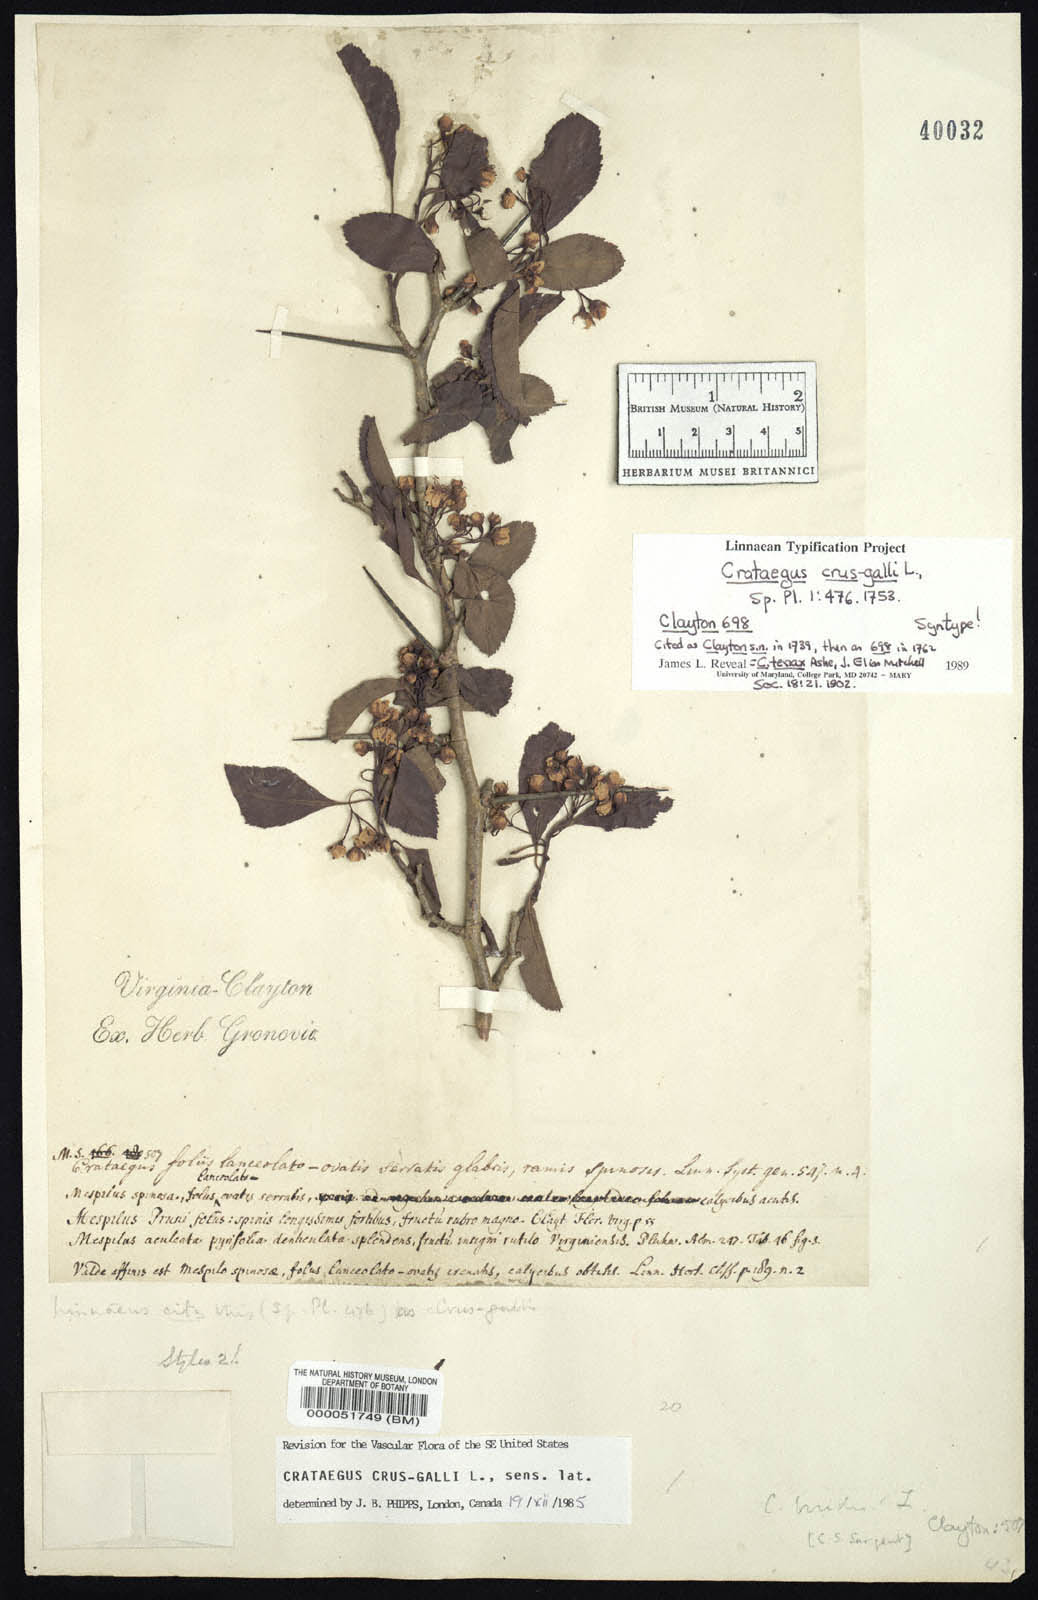 40032
1 2
BRITISH MUSEUM (NATURAL HISTORY)
1 2 3 4 5
HERBARIUM MUSEI BRITANNICI
Linnaean Typification Project
Crataegus crus-galli L.,
Sp. Pl. 1: 476. 1753.
Clayton 698 Syntype!
Cited as Clayton s.n. in 1739, then as 698 in 1762
James L. Reveal = C. tenax Ashe, J. Elisa Mitchell 1989
University of Maryland, College Park, MD 20742 – MARY
Soc. 18: 21. 1902.
Virginia-Clayton
Ex. Herb. Gronovii
M. S. 166. 507
Crataegus foliis lanceolato-ovatis serratis glabris, ramis spinosis. Linn. Syst. gen. 547. n. 4.
lanceolato-
Mespilus spinosa, foliis ovatis serratis, calycibus acutis.
Mespilus Pruni foliis: spinis longissimis fortibus, fructu rubro magno. Clayt. Flor. Virg. p 55
Mespilus aculeata pyrifolia denticulata splendens, fructu insigni rutilo Virginiensis. Pluknt. Alm. 247. Tab. 46 fig. 3.
Valde affinis est Mespilo spinosæ, foliis lanceolato-ovatis crenatis, calycibus obtusis. Linn. Hort. Cliff. p. 189. n. 2
Linnaeus cites this (Sp. Pl. 476) as Crus-galli
Styles 2!
THE NATURAL HISTORY MUSEUM, LONDON
DEPARTMENT OF BOTANY
000051749 (BM)
20
Revision for the Vascular Flora of the SE United States
CRATAEGUS CRUS-GALLI L., sens. lat.
determined by J. B. PHIPPS, London, Canada 19/xii/1985
C. L.
[C. S. Sargent]
Clayton: 507
43